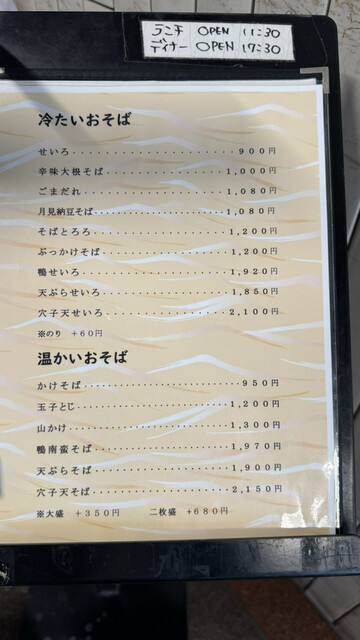 ランチ OPEN 11:30
ディナー OPEN 17:30
冷たいおそば
せいろ・・・・・・・・・・・・・・・・・・・900円
辛味大根そば・・・・・・・・・・・・・・1,000円
ごまだれ・・・・・・・・・・・・・・・・・1,080円
月見納豆そば・・・・・・・・・・・・・・・1,080円
そばとろろ・・・・・・・・・・・・・・・・1,200円
ぶっかけそば・・・・・・・・・・・・・・・1,200円
鴨せいろ・・・・・・・・・・・・・・・・・1,920円
天ぷらせいろ・・・・・・・・・・・・・・・1,850円
穴子天せいろ・・・・・・・・・・・・・・2,100円
※のり +60円
温かいおそば
かけそば・・・・・・・・・・・・・・・・・・950円
玉子とじ・・・・・・・・・・・・・・・・・1,200円
山かけ・・・・・・・・・・・・・・・・・・1,300円
鴨南蛮そば・・・・・・・・・・・・・・・・1,970円
天ぷらそば・・・・・・・・・・・・・・・・1,900円
穴子天そば・・・・・・・・・・・・・・・・2,150円
※大盛 +350円 二枚盛 +680円